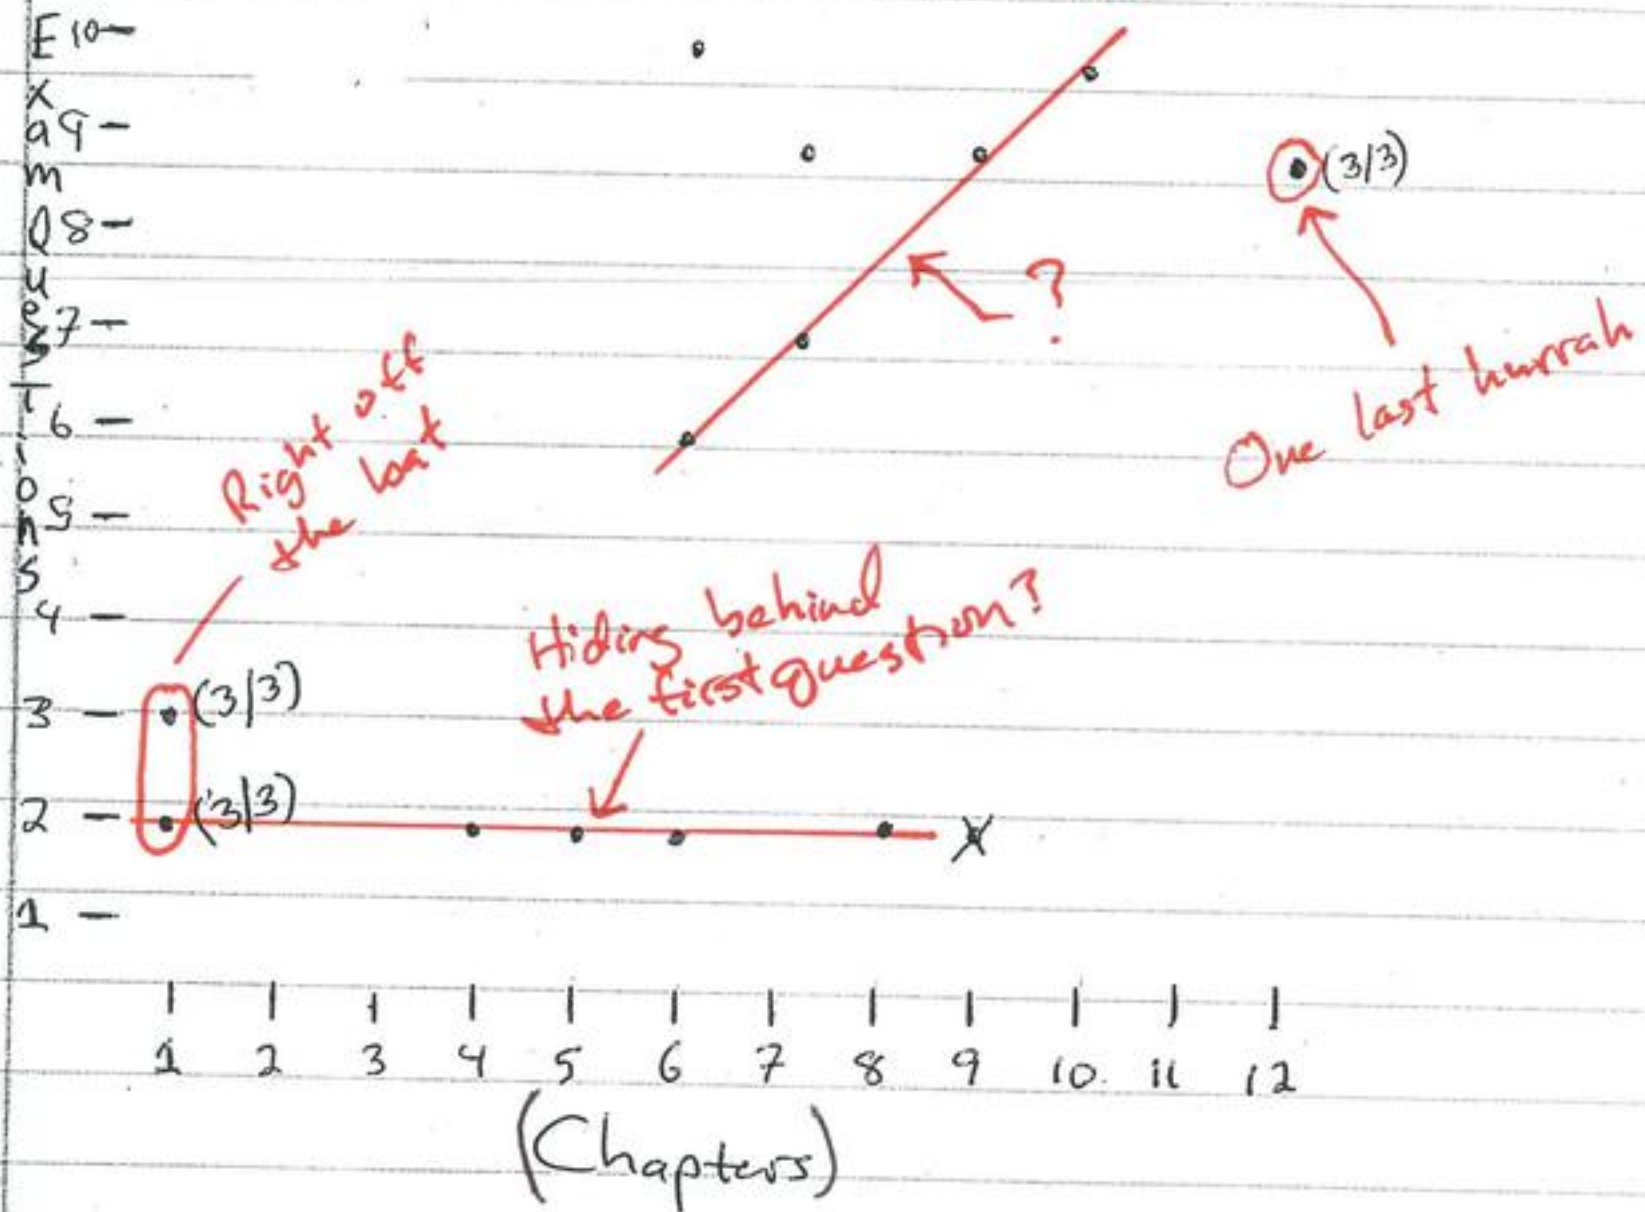 Exam Questions
10
9
8
7
6
5
4
3
2
1
(3/3)
?
One last hurrah
Right off
the bat
Hiding behind
the first question?
(3/3)
(3/3)
X
1 2 3 4 5 6 7 8 9 10 11 12
(Chapters)